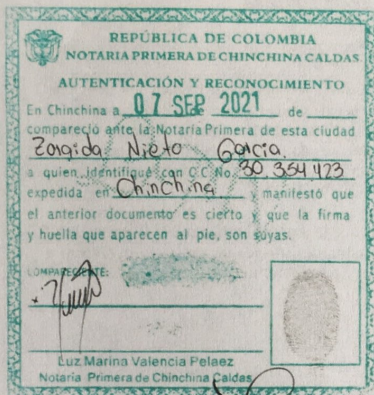 REPÚBLICA DE COLOMBIA
NOTARIA PRIMERA DE CHINCHINA CALDAS
AUTENTICACIÓN Y RECONOCIMIENTO
En Chinchina a 07 SEP 2021 de
compareció ante la Notaria Primera de esta ciudad
Zorgida Nieto Garcia.
a quien identifiqué con C.C No. 30.354.423
expedida en Chinchina manifestó que
el anterior documento es cierto y que la firma
y huella que aparecen al pie, son suyas.
COMPARECIENTE:
Luz Marina Valencia Pelaez
Notaria Primera de Chinchina Caldas